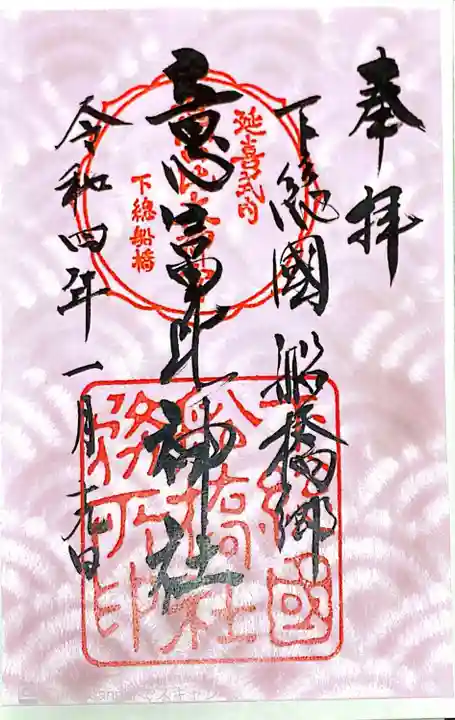 奉拝
下總國船橋郷
意富比神社
令和四年一月元日
延喜式内
下總船橋